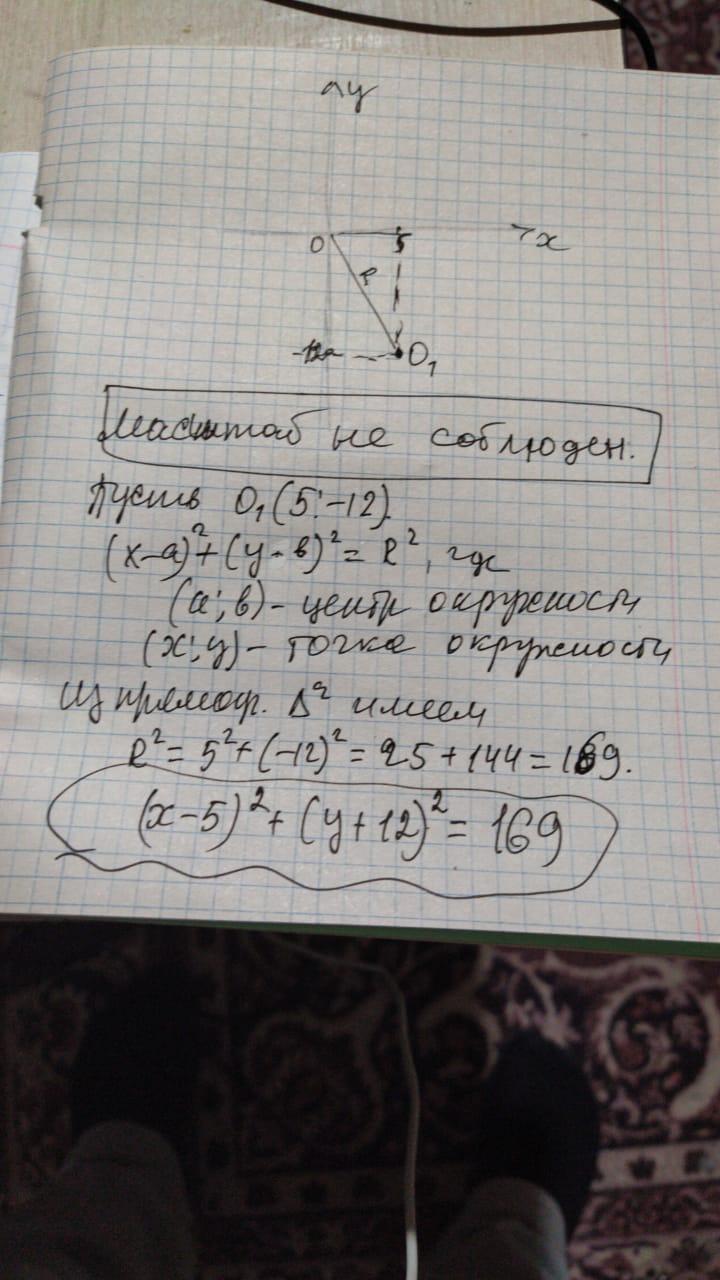 y
O 5 x
R
-12 O₁
Масштаб не соблюден.
Пусть O₁(5;-12).
(x-a)²+(y-в)²=R², где
(a;в)-центр окружности
(x;y)-точка окружности
Из прямоуг. Δа имеем
R²=5²+(-12)²=25+144=169.
(x-5)²+(y+12)²=169